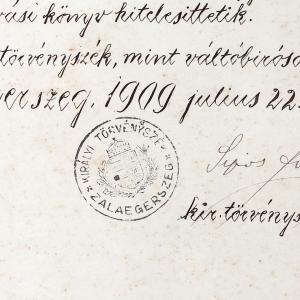 ási könyv hitelesíttetik.
törvényszék, mint váltóbírósá
erszeg, 1909 július 22.
KIRÁLYI TÖRVÉNYSZÉK
ZALAEGERSZEG
Sipos
kir. törvénys